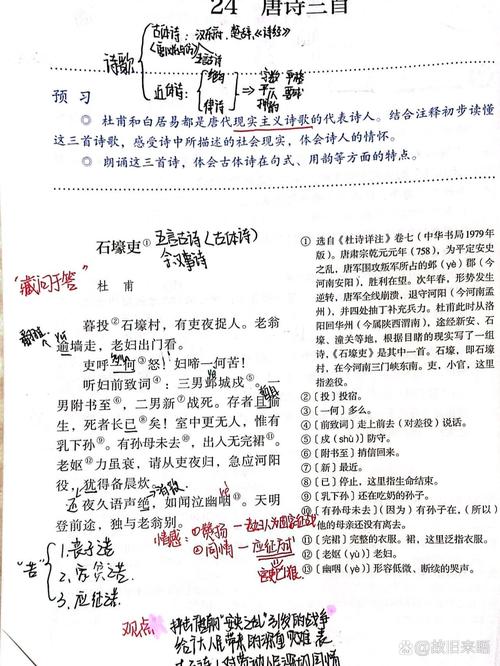 24 唐诗三首
古体诗：汉乐府，楚辞，《诗经》
诗歌
近体诗：
律诗
预 习
◎ 杜甫和白居易都是唐代现实主义诗歌的代表诗人。结合注释初步读懂
这三首诗歌，感受诗中所描述的社会现实，体会诗人的情怀。
◎ 朗诵这三首诗，体会古体诗在句式、用韵等方面的特点。
石壕吏① 五言古诗(古体诗)
叙事诗
"藏问于答"
杜 甫
暮投②石壕村，有吏夜捉人。老翁
逾墙走，老妇出门看。
吏呼一何③怒！妇啼一何苦！
听妇前致词④：三男邺城戍⑤。一
男附书至⑥，二男新⑦战死。存者且偷
生，死者长已⑧矣！室中更无人，惟有
乳下孙⑨。有孙母未去⑩，出入无完裙⑪。
老妪⑫力虽衰，请从吏夜归，急应河阳
役，犹得备晨炊。
夜久语声绝，如闻泣幽咽⑬。天明
登前途，独与老翁别。
① 选自《杜诗详注》卷七（中华书局1979年
版）。唐肃宗乾元元年（758），为平定安史
之乱，唐军围攻叛军所占的邺（yè）郡（今
河南安阳），胜利在望。次年春，形势发生
逆转，唐军全线崩溃，退守河阳（今河南孟
州），并四处抽丁补充兵力。杜甫此时从洛
阳回华州（今属陕西渭南），途经新安、石
壕、潼关等地，根据目睹的现实写了一组
诗，《石壕吏》是其中一首。石壕，即石壕
村，在今河南三门峡东南。吏，小官，这里
指差役。
②〔投〕投宿。
③〔一何〕多么。
④〔前致词〕走上前去（对差役）说话。
⑤〔戍（shù）〕防守。
⑥〔附书至〕捎信回来。
⑦〔新〕最近。
⑧〔已〕停止，这里指生命结束。
⑨〔乳下孙〕还在吃奶的孙子。
⑩〔有孙母未去〕（因为）有孙子在，（所以）
他的母亲还没有离去。
⑪〔完裙〕完整的衣服。裙，这里泛指衣服。
⑫〔老妪（yù）〕老妇。
⑬〔幽咽（yè）〕形容低微、断续的哭声。
情感：①赞扬
②同情 — 应征苦
"苦"
1.丧子苦
2.
3.应征苦
观点
故旧来嗝